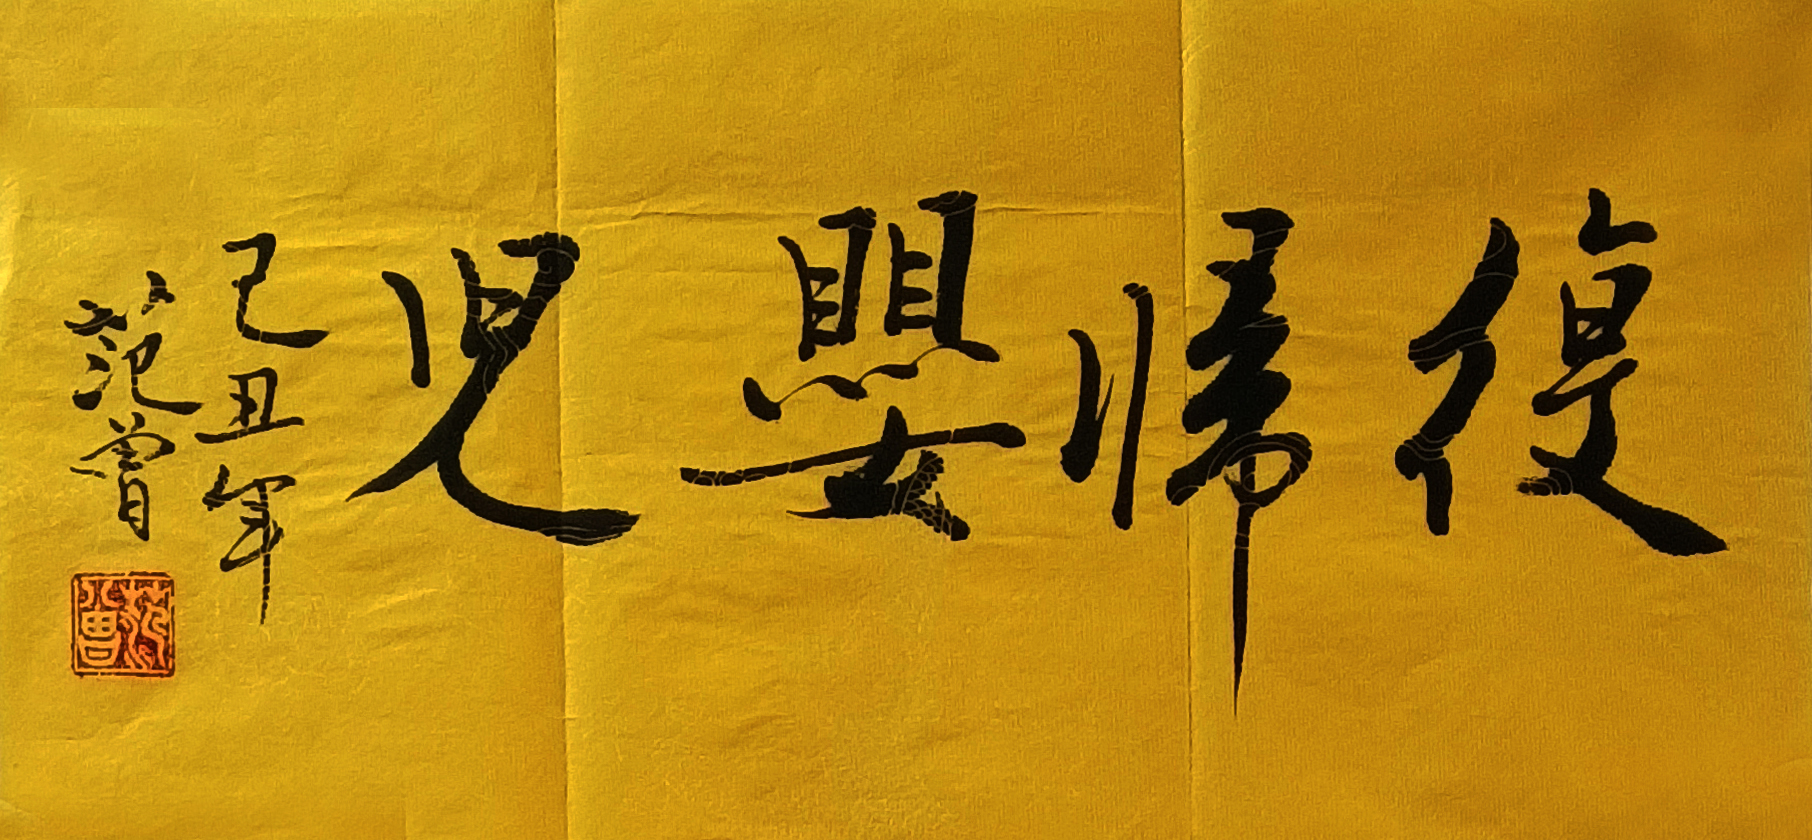 復帰嬰児
己丑年
范曾
范曾